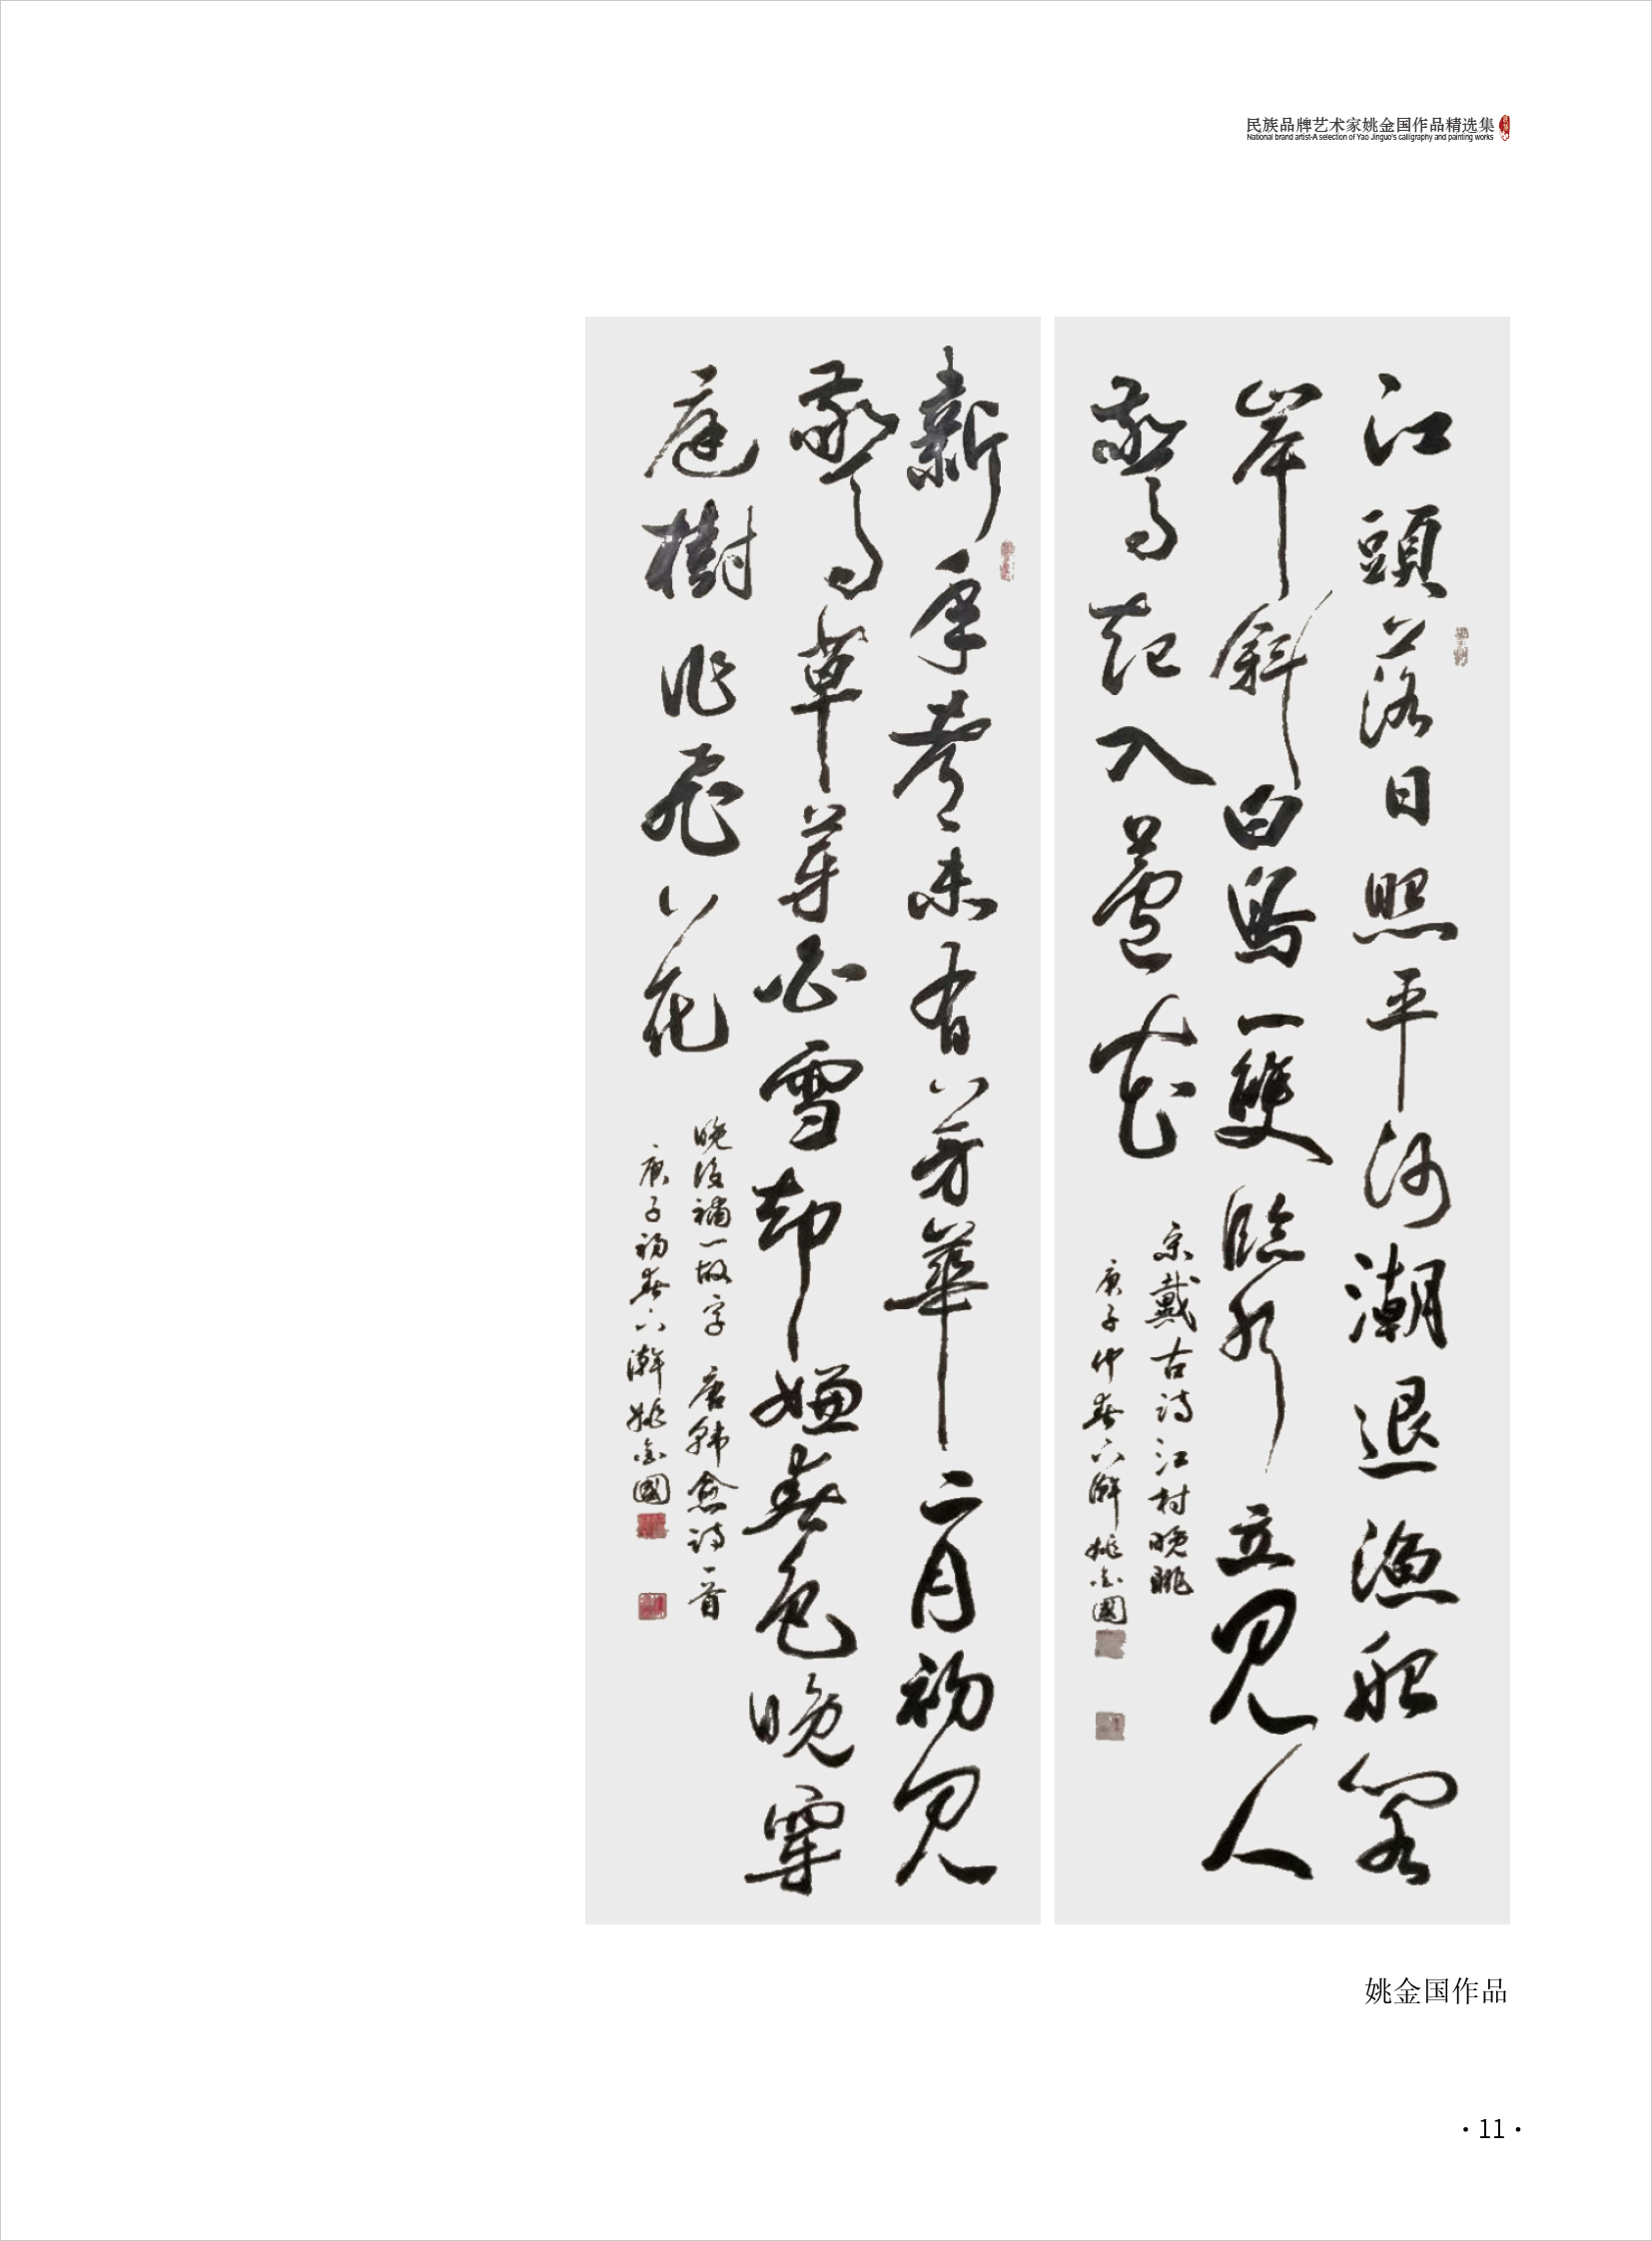 民族品牌艺术家姚金国作品精选集
National brand artist-A selection of Yao Jinguo's calligraphy and painting works
江頭落日照平沙潮退漁船閣
岸斜白鳥一雙臨水立見人
驚起入蘆花
宋戴古詩江村晚眺
庚子仲春六澥姚金國
新年都未有芳華二月初見
驚草芽白雪却嫌春色晚穿
庭樹作飛花
晚後補一故字 唐韩愈詩一首
庚子初春六澥姚金國
姚金国作品
· 11 ·